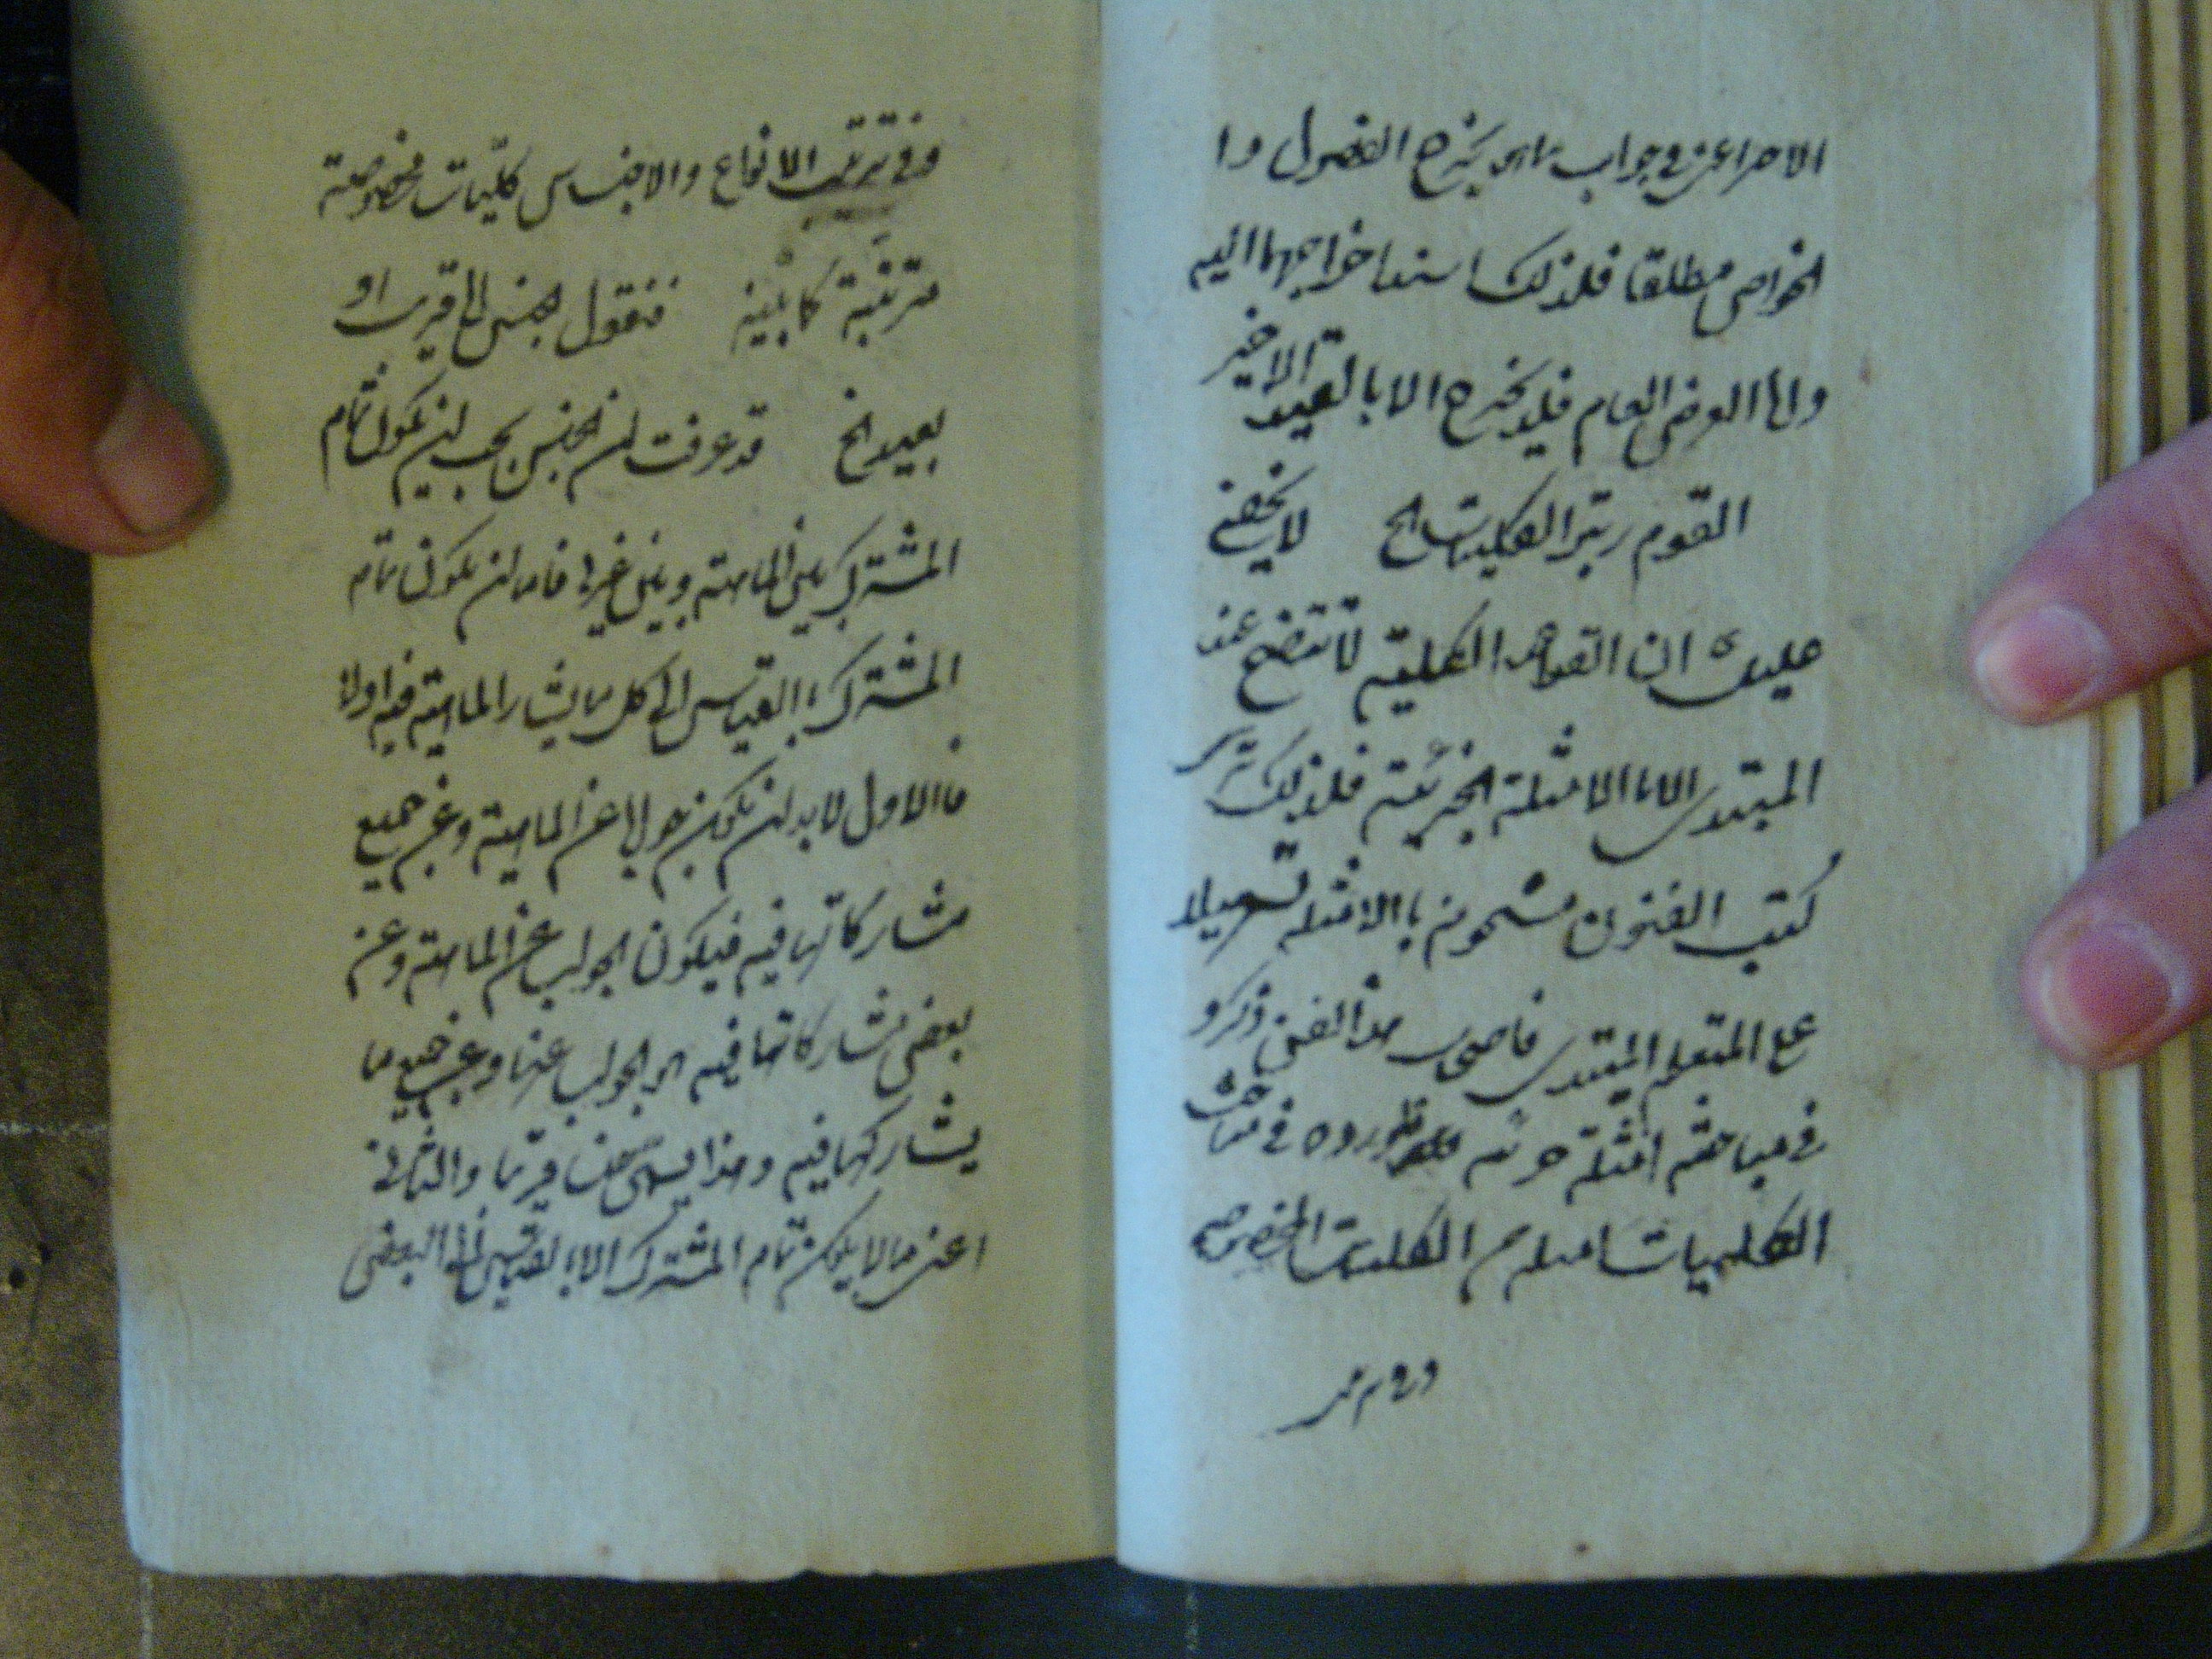 الاحتراز عن في جواب ما هو يخرج الفصول وا
الخواص مطلقا فلذلك اسند اخراجهما اليه
واما العرض العام فلا يخرج الا بالقيد الاخير
القوم رتبوا الكليات الخ لا يخفى
عليك ان القواعد الكلية لا تتضح عند
المبتدى الا بالامثلة الجزئية فلذلك ترى
كتب الفنون مشحونة بالامثلة تسهيلا
على المتعلم المبتدى فاصحاب هذا الفن ذكروا
في مباحثه امثلة جزئية في مباحث
الكليات امثلة من الكليات المخصوصة
وفي ترتيب الانواع والاجناس كليات مخصوصة
مرتبة كما بينه فنقول الجنس اما قريب او
بعيد الخ قد عرفت ان الجنس يجب ان يكون تمام
المشترك بين الماهية وبين غيرها فاما ان يكون تمام
المشترك بالقياس الى كل ما يشارك الماهية فيه اولا
فالاول لا بد ان يكون جوابا عن الماهية وعن جميع
مشاركاتها فيه فيكون الجواب عن الماهية وعن
بعض مشاركاتها فيه هو الجواب عنها وعن جميع ما
يشاركها فيه وهذا يسمى جنسا قريبا والثاني
اعني ما لا يكون تمام المشترك الا بالقياس الى البعض